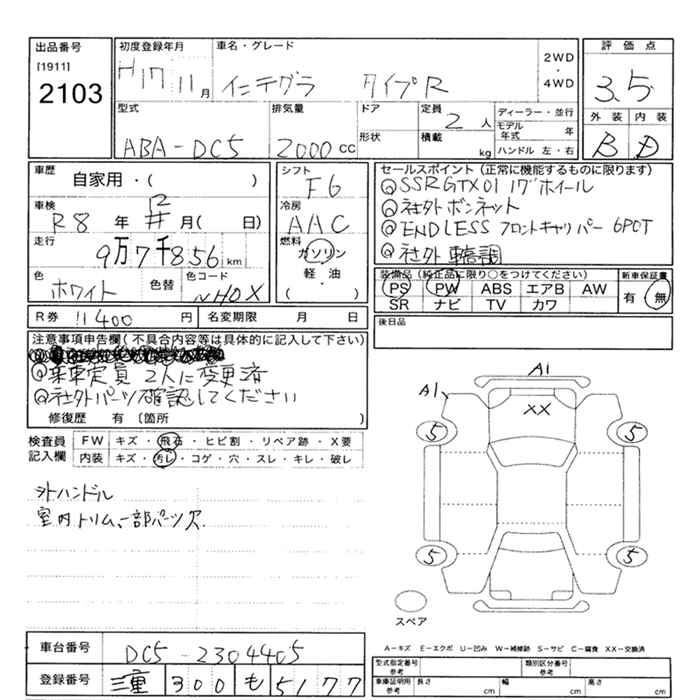 出品番号
[1911]
2103
初度登録年月
H17 11月
車名・グレード
インテグラ タイプR
2WD
・
4WD
評価点
3.5
外装 内装
B D
型式
ABA-DC5
排気量
2000 cc
ドア
形状
定員
2人
積載
kg
ディーラー・並行
モデル年式 年
ハンドル 左・右
車歴
自家用・( )
車検
R8年 月( 日)
走行
9万7千856km
色
ホワイト
色替
色コード
NHOX
シフト
F6
冷房
AAC
燃料
ガソリン
軽油
( )
セールスポイント(正常に機能するものに限ります)
SSR GTX01 17"ホイール
社外ボンネット
ENDLESS フロントキャリパー 6POT
社外車高調
装備品(純正品に限り○をつけてください)
PS PW ABS エアB AW
SR ナビ TV カワ
新車保証書
有 無
R券 11400円
名変期限 月 日
後日品
注意事項申告欄(不具合内容等は具体的に記入して下さい)
乗車定員 2人に変更済
社外パーツ確認してください
修復歴 有 (箇所 )
検査員
記入欄
FW キズ・飛石・ヒビ割・リペア跡・X要
内装 キズ・汚レ・コゲ・穴・スレ・キレ・破レ
外ハンドル
室内トリム、一部パーツ欠
A1
A1
XX
5
5
5
5
スペア
A-キズ E-エクボ U-凹み W-補修跡 S-サビ C-腐食 XX-交換済
車台番号
DC5-2304405
登録番号
三重 300 も 5177
型式指定番号
参考
類別区分番号
参考
車庫証明用
参考
長さ cm
幅 cm
高さ cm